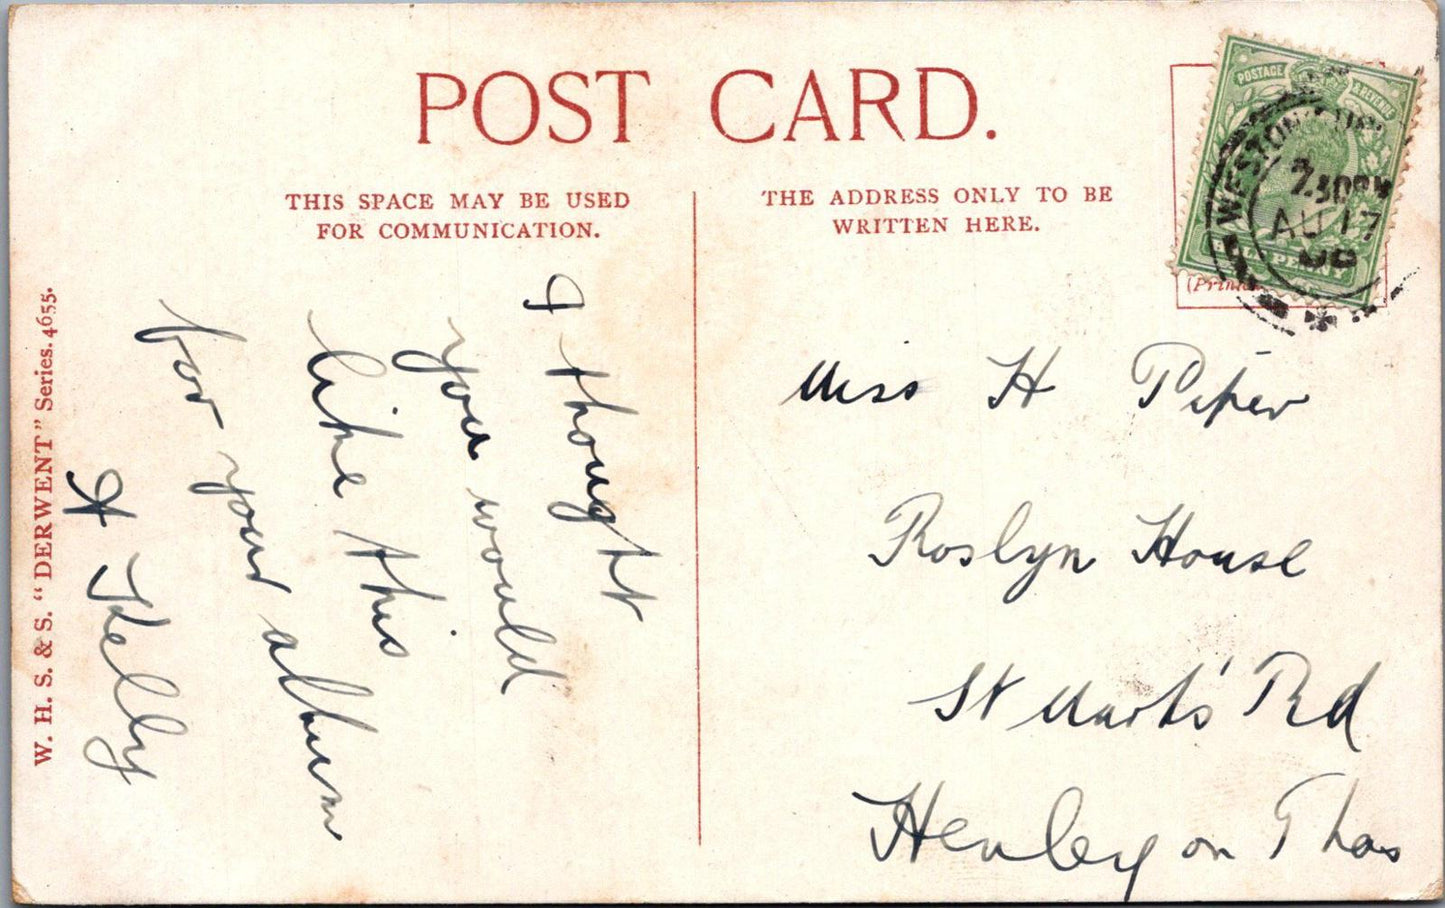 POST CARD.
THIS SPACE MAY BE USED
FOR COMMUNICATION.
THE ADDRESS ONLY TO BE
WRITTEN HERE.
POSTAGE & REVENUE
HALFPENNY
WESTON
7.30PM
AU 17
(Printed
I thought
you would
like this
for your album
A Kelly
Miss H Piper
Roslyn House
St Mark's Rd
Henley on Thas
W. H. S. & S. "DERWENT" Series. 4655.